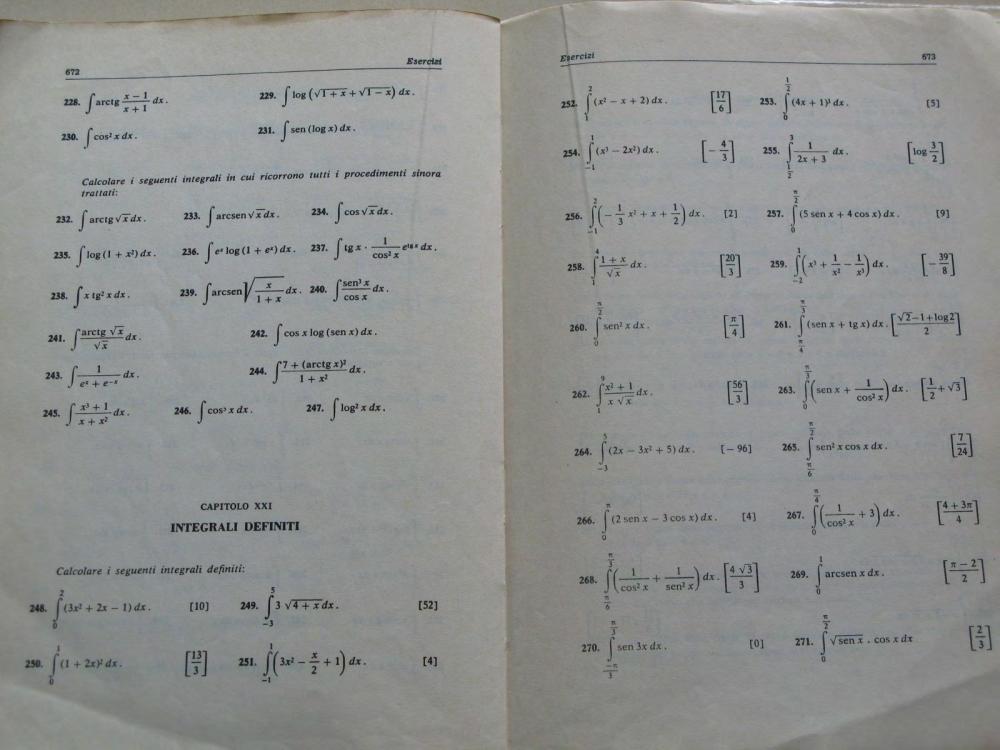 672 Esercizi
228. ∫ arctg (x − 1)/(x + 1) dx. 229. ∫ log (√(1 + x) + √(1 − x)) dx.
230. ∫ cos² x dx. 231. ∫ sen (log x) dx.
Calcolare i seguenti integrali in cui ricorrono tutti i procedimenti sinora
trattati:
232. ∫ arctg √x dx. 233. ∫ arcsen √x dx. 234. ∫ cos √x dx.
235. ∫ log (1 + x²) dx. 236. ∫ eˣ log (1 + eˣ) dx. 237. ∫ tg x · 1/cos² x e^(tg x) dx.
238. ∫ x tg² x dx. 239. ∫ arcsen √(x/(1 + x)) dx. 240. ∫ sen³ x/cos x dx.
241. ∫ arctg √x/√x dx. 242. ∫ cos x log (sen x) dx.
243. ∫ 1/(eˣ + e⁻ˣ) dx. 244. ∫ (7 + (arctg x)²)/(1 + x²) dx.
245. ∫ (x³ + 1)/(x + x²) dx. 246. ∫ cos³ x dx. 247. ∫ log² x dx.
CAPITOLO XXI
INTEGRALI DEFINITI
Calcolare i seguenti integrali definiti:
248. ∫₀² (3x² + 2x − 1) dx. [10] 249. ∫₋₃⁵ 3 √(4 + x) dx. [52]
250. ∫₀¹ (1 + 2x)² dx. [13/3] 251. ∫₋₁¹ (3x² − x/2 + 1) dx. [4]
Esercizi 673
252. ∫₁² (x² − x + 2) dx. [17/6] 253. ∫₀^(1/2) (4x + 1)³ dx. [5]
254. ∫₋₁¹ (x³ − 2x²) dx. [− 4/3] 255. ∫_(1/2)^3 1/(2x + 3) dx. [log 3/2]
256. ∫₋₁² (− 1/3 x² + x + 1/2) dx. [2] 257. ∫₀^(π/2) (5 sen x + 4 cos x) dx. [9]
258. ∫₁⁴ (1 + x)/√x dx. [20/3] 259. ∫₋₂¹ (x³ + 1/x² − 1/x³) dx. [− 39/8]
260. ∫₀^(π/2) sen² x dx. [π/4] 261. ∫_(π/4)^(π/3) (sen x + tg x) dx. [(√2−1+log2)/2]
262. ∫₁⁹ (x² + 1)/(x √x) dx. [56/3] 263. ∫₀^(π/3) (sen x + 1/cos² x) dx. [1/2 + √3]
264. ∫₋₃⁵ (2x − 3x² + 5) dx. [− 96] 265. ∫_(π/6)^(π/2) sen² x cos x dx. [7/24]
266. ∫₀^π (2 sen x − 3 cos x) dx. [4] 267. ∫₀^(π/4) (1/cos² x + 3) dx. [(4 + 3π)/4]
268. ∫_(π/6)^(π/3) (1/cos² x + 1/sen² x) dx. [4 √3/3] 269. ∫₀¹ arcsen x dx. [(π − 2)/2]
270. ∫_(−π/3)^(π/3) sen 3x dx. [0] 271. ∫₀^(π/2) √(sen x) . cos x dx [2/3]